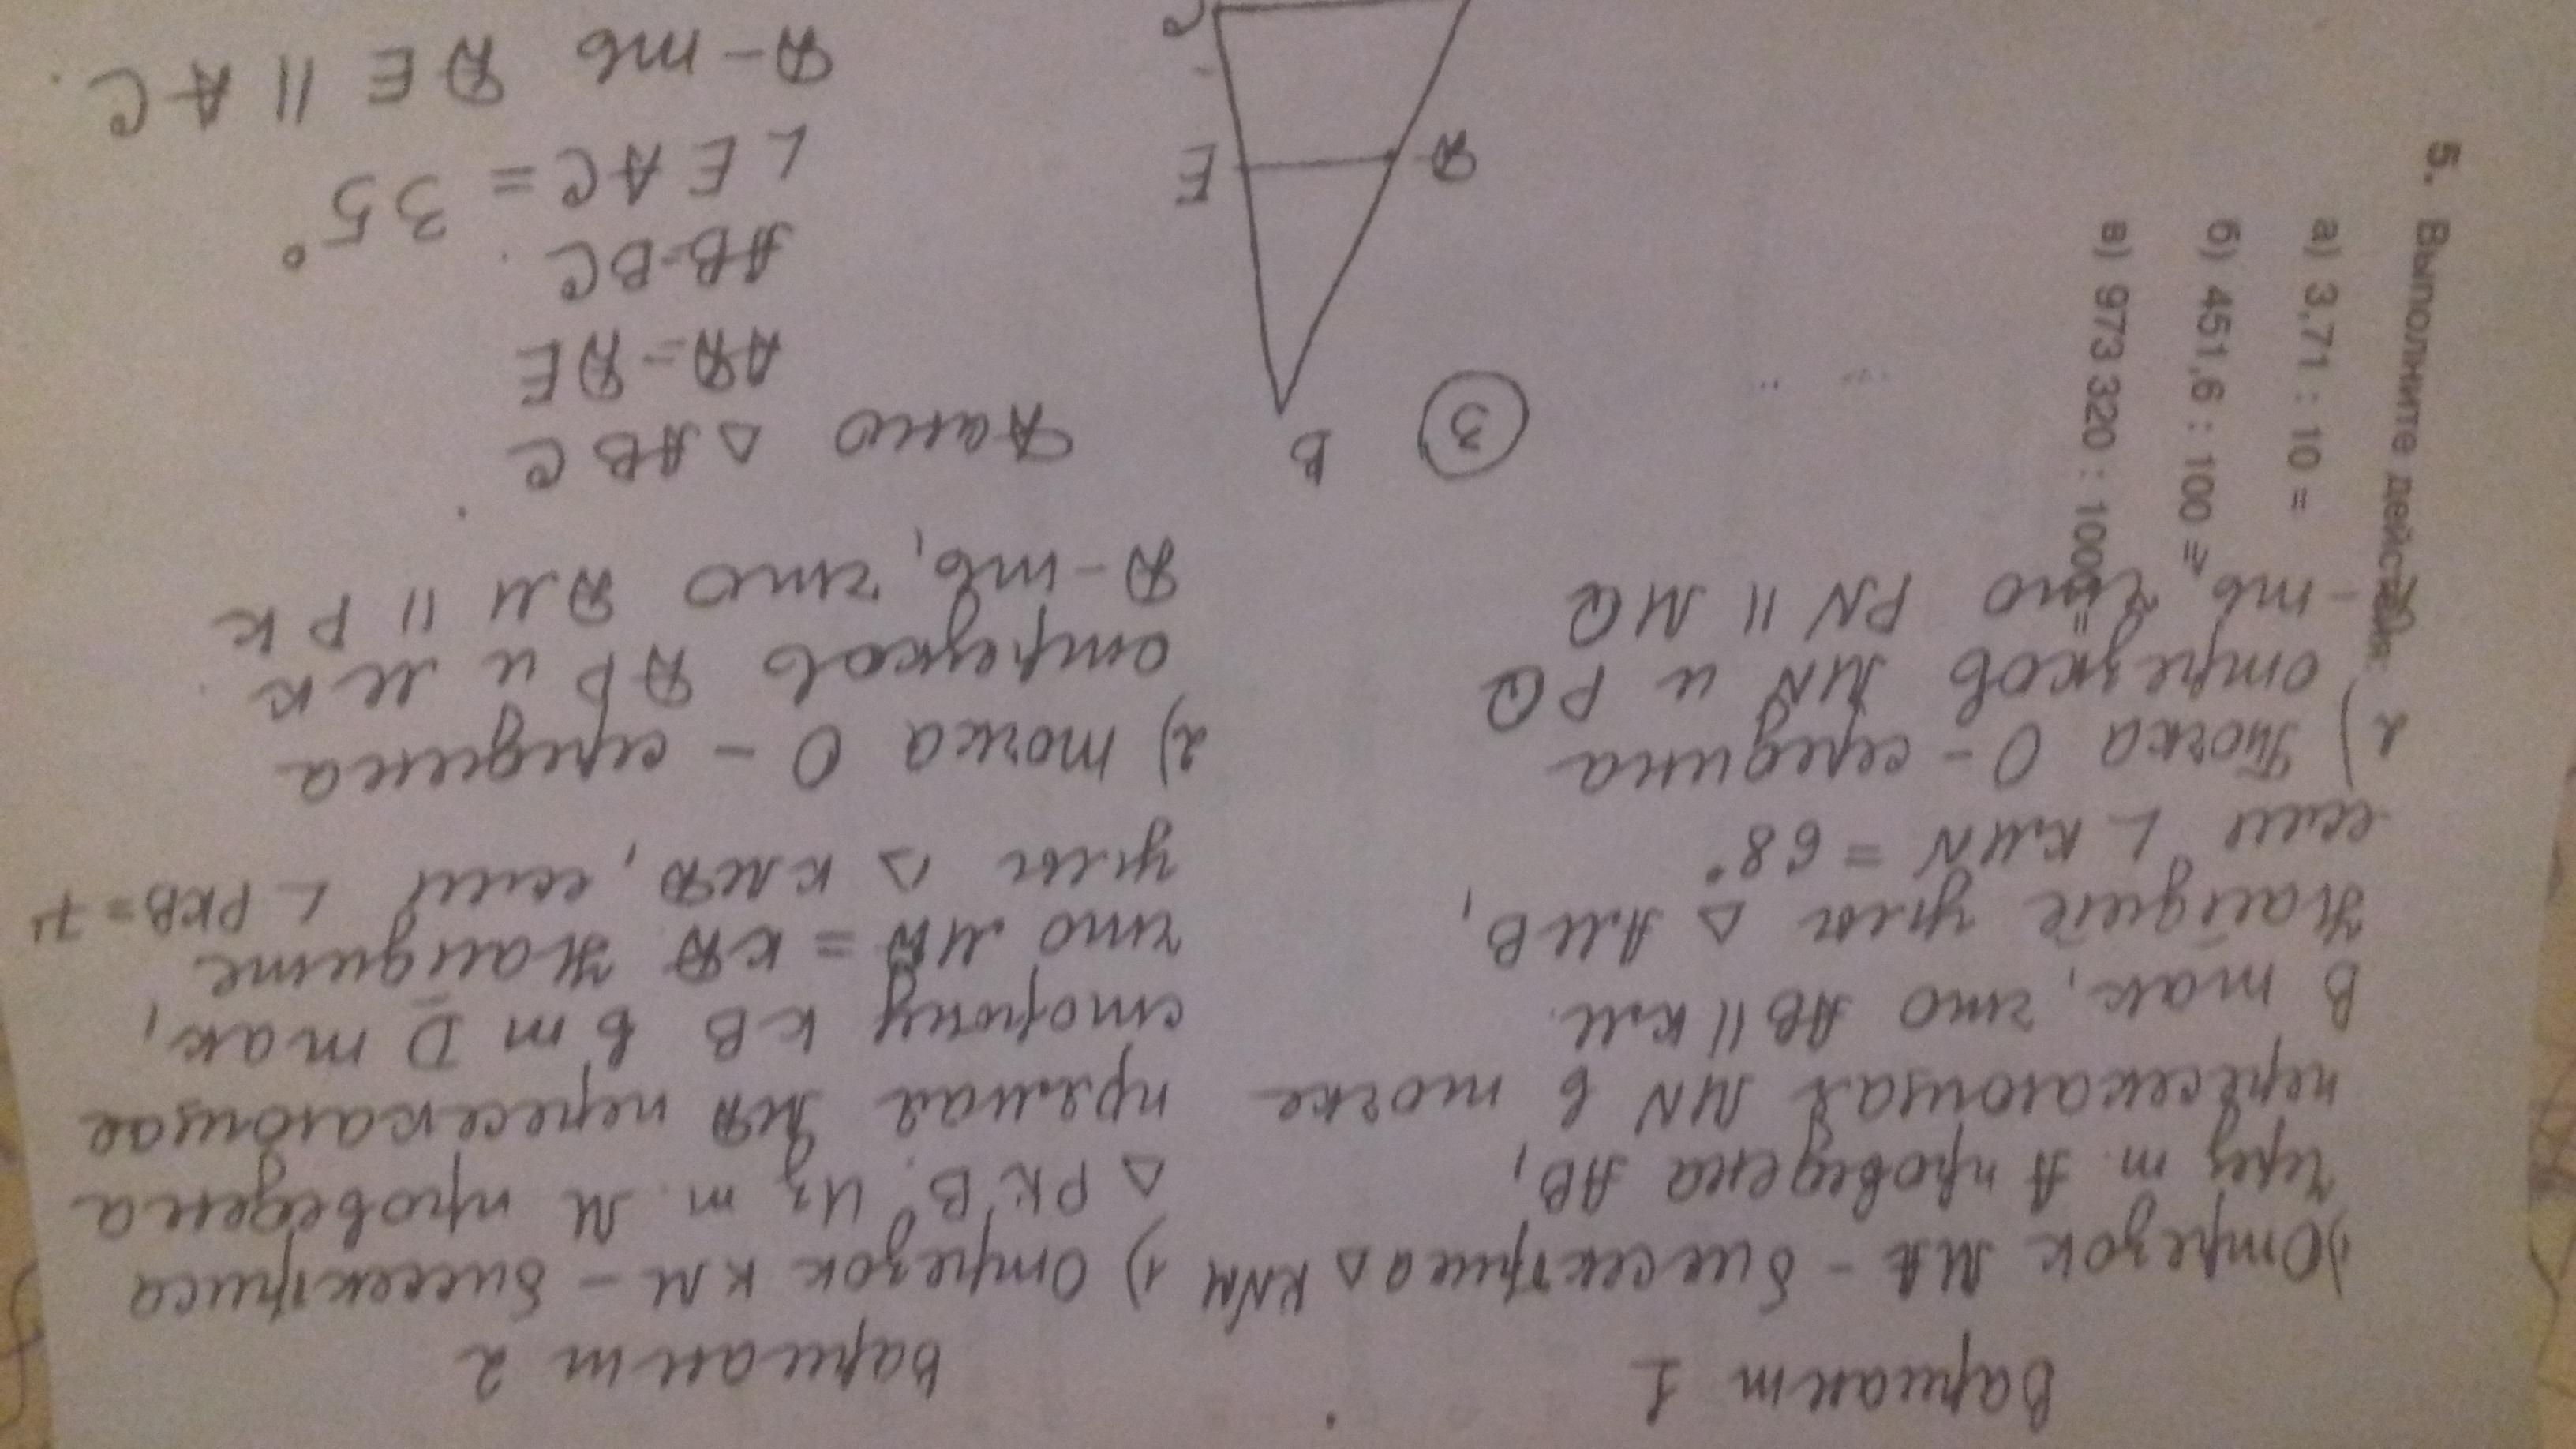 Вариант 1
1) Отрезок МА - биссектриса △ KNM
Через т. А проведена АВ,
пересекающая MN в точке
В так, что АВ || КМ.
Найдите углы △ АМВ,
если ∟ KMN = 68°
2) Точка О - середина
отрезков MN и PQ
- ть, что PN || MQ
Вариант 2
1) Отрезок КМ - биссектриса
△ РКВ. Из т. М проведена
прямая МД пересекающае
сторону КВ в т D так,
что МД = КД Найдите
углы △ КМД, если ∟ РКВ =
2) точка О - середина
отрезков и МК
Д-ть, что ДМ || РК
3
В
Д
Е
С
Дано △ АВС
АД = ДЕ
АВ-ВС
∟ ЕАС = 35°
Д-ть ДЕ || АС.
5. Выполните
а) 3,71 : 10 =
б) 451,6 : 100 =
в) 973 320 : 1000 =